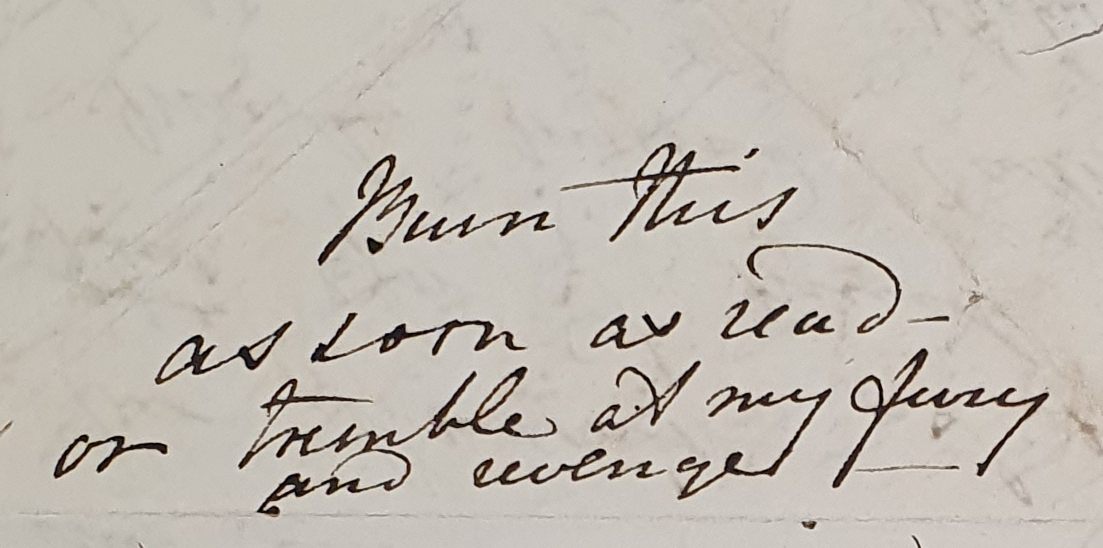 Burn this
as soon as read-
or tremble at my fury
and revenge —